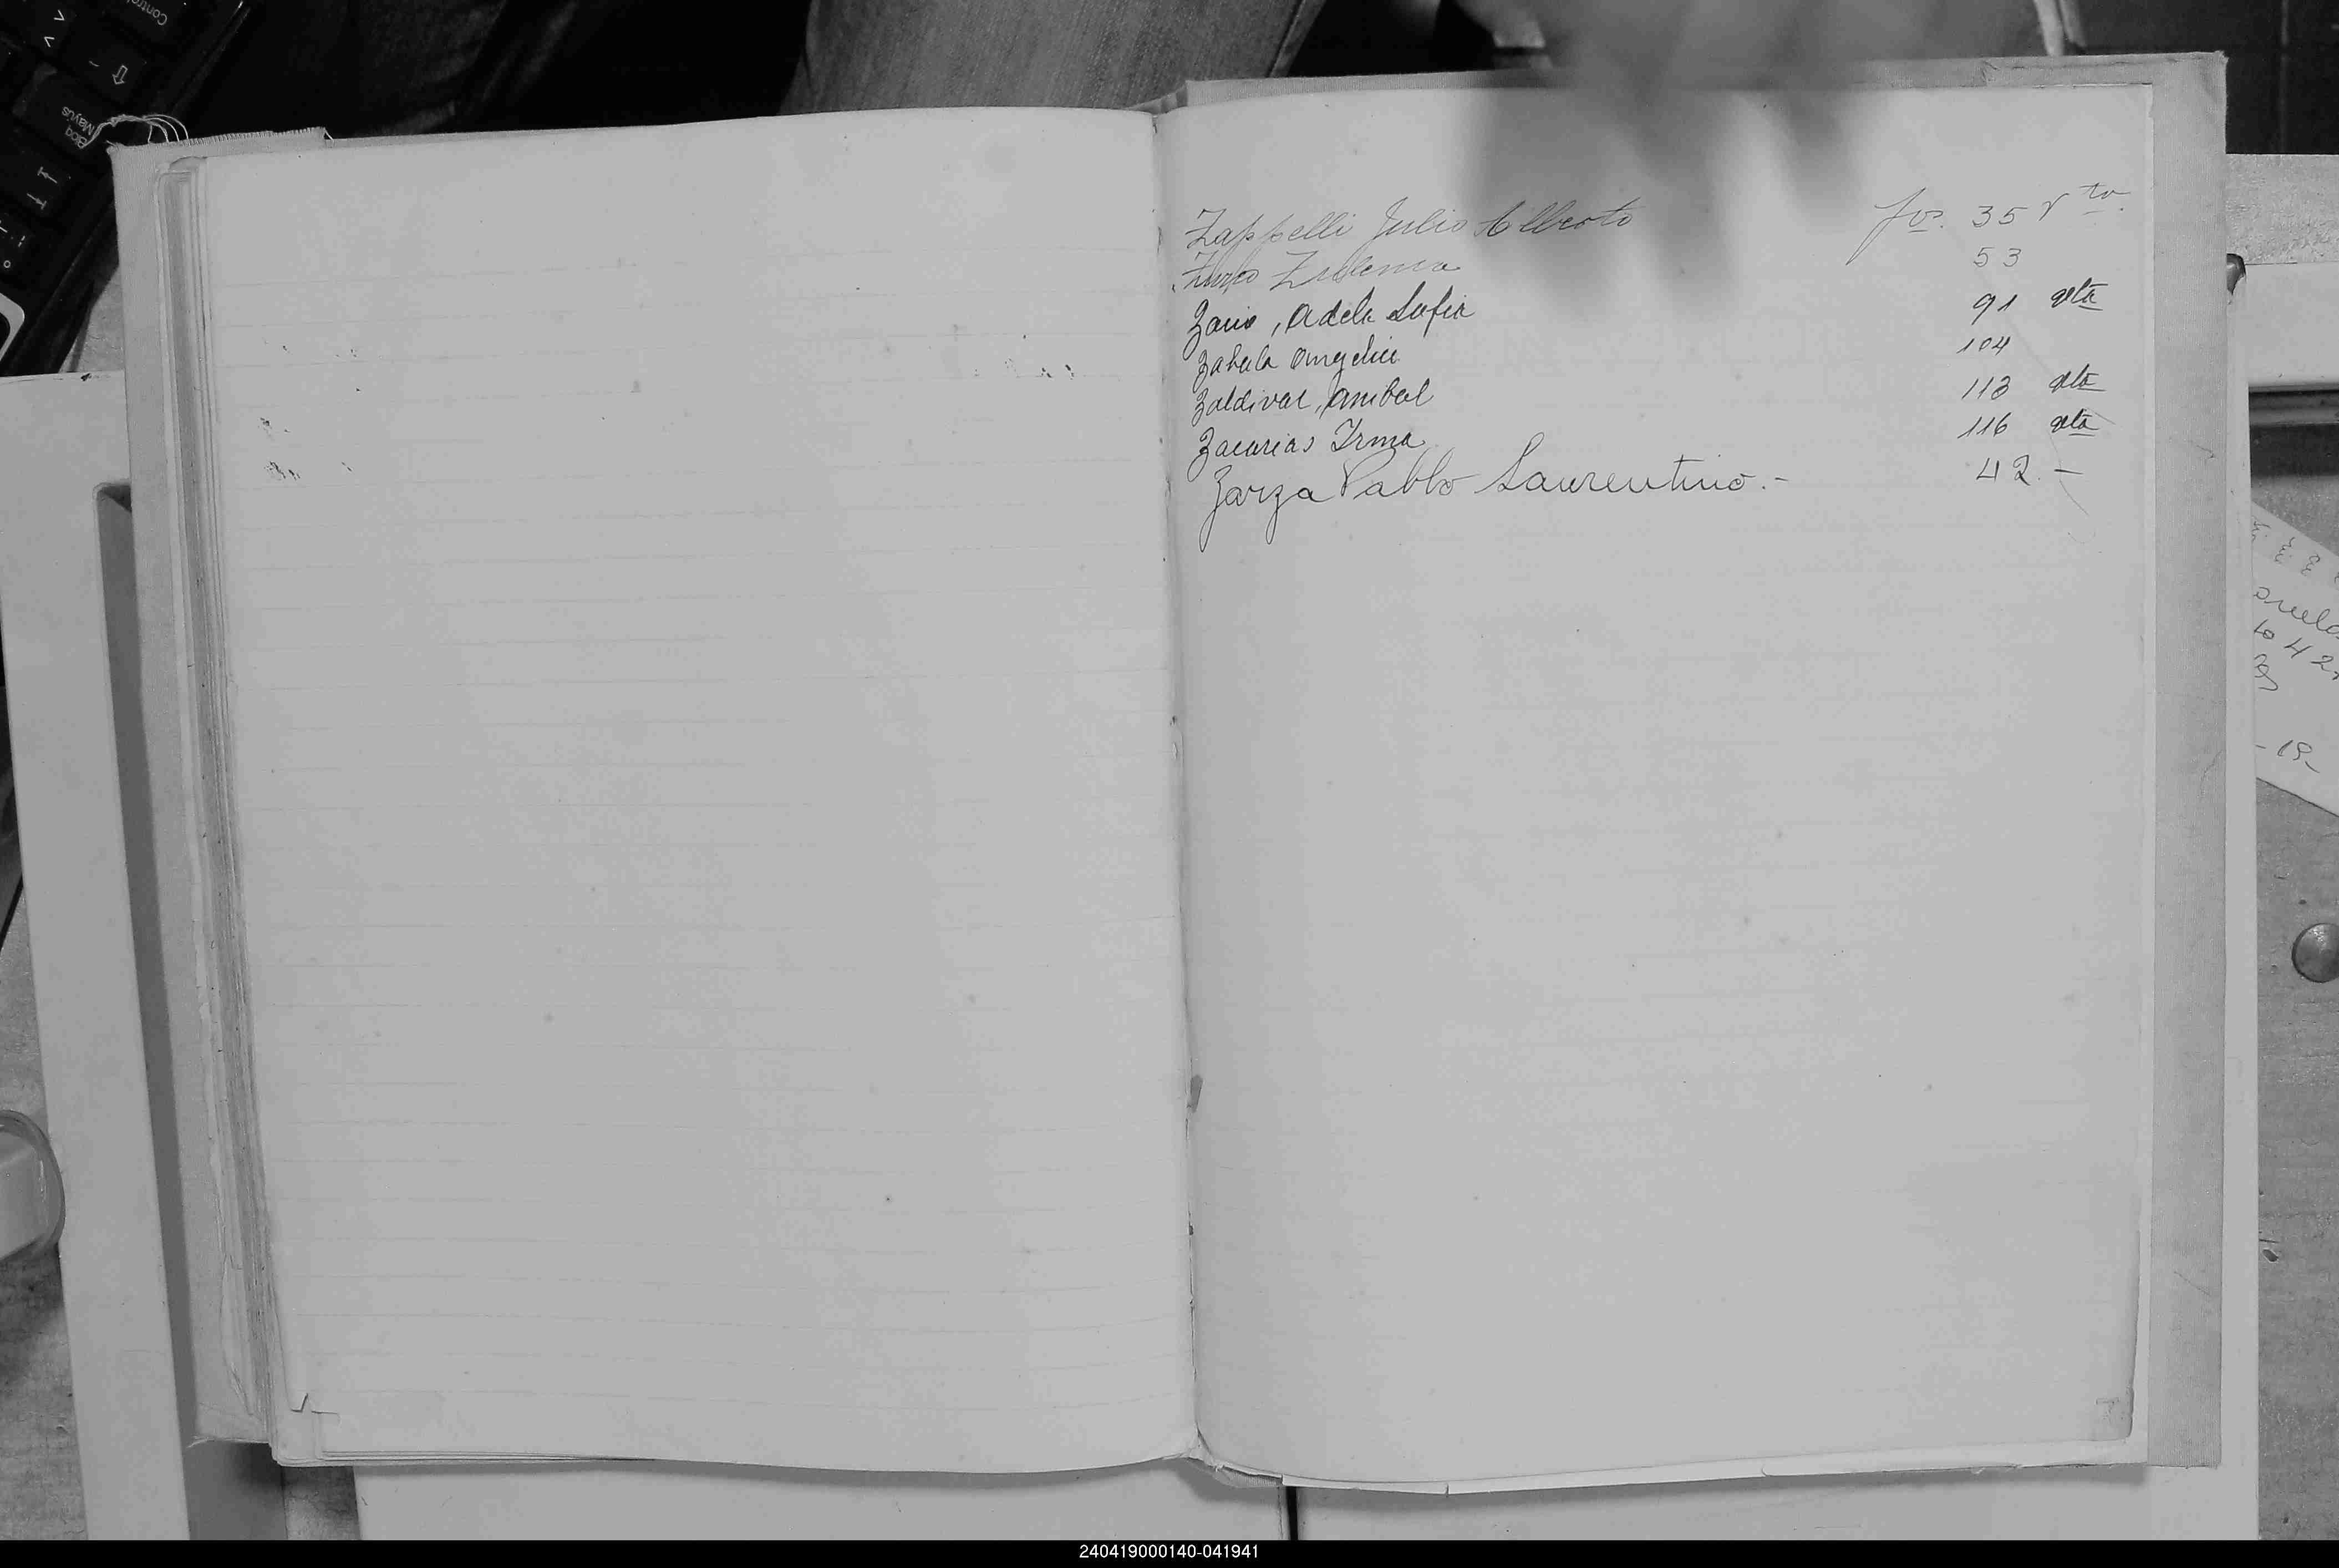 Zappelli Julio Alberto fo. 35 vto.
Zulema 53
Adela Sofia 91 vta
Zabala Angelica 104
Zaldivar, Anibal 113 vta
Zacarias Irma 116 vta
Zarza Pablo Laurentino.- 42.-
240419000140-041941